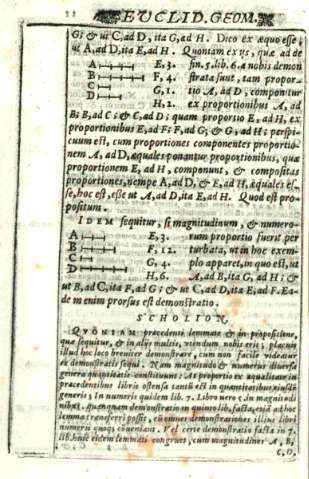 EVCLID. GEOM.
G; & ut C, ad D, ita G, ad H. Dico ex æquo esse;
ut A, ad D, ita E, ad H. Quoniam ex ijs, quæ ad de
A E, 3. fin. 5. lib. 6. a nobis demon
B F, 4. strata sunt, tam propor-
C G, 1. tio A, ad D, componitur
D H, 2. ex proportionibus A, ad
B; B, ad C; & C, ad D; quam proportio E, ad H, ex
proportionibus E, ad F; F, ad G; & G, ad H; perspi-
cuum est, cum proportiones componentes proportio-
nem A, ad D, æquales ponantur proportionibus, quæ
proportionem E, ad H, componunt, & compositas
proportiones, nempe A, ad D, & E, ad H, æquales es-
se, hoc est, esse ut A, ad D, ita E, ad H. Quod est pro-
positum.
IDEM sequitur, si magnitudinum, & numero-
A E, 3. rum proportio fuerit per
B F, 12. turbata, ut in hoc exem-
C G, 4. plo apparet, in quo est, ut
D H, 6. A, ad B, ita G, ad H; &
ut B, ad C, ita F, ad G; & ut C, ad D, ita E, ad F. Ea-
dem enim prorsus est demonstratio.
SCHOLION.
QVONIAM præcedenti lemmate & in propositione,
quæ sequitur, & in alijs multis, viendum nobis erit; placuit
illud hoc loco breuiter demonstrare, cum non facile videatur
ex demonstratis sequi. Nam magnitudo & numerus diuersa
genera quantitatis constituunt: At proportio ex æqualitate in
præcedentibus libris ostensa tantū est in quantitatibus eiusdē
generis; In numeris quidem lib. 7. Libro vero 5. in magnitudi
nibus. quanquam demonstratio in quinto lib. facta, etiā ad hoc
lemma transferri possit, cū omnes demonstrationes illius libri
numeris quoq; conueniant. Vel certe demonstratio facta in 7.
lib. huic eidem lemmati congruet, cum magnitudines A, B,
C, D,